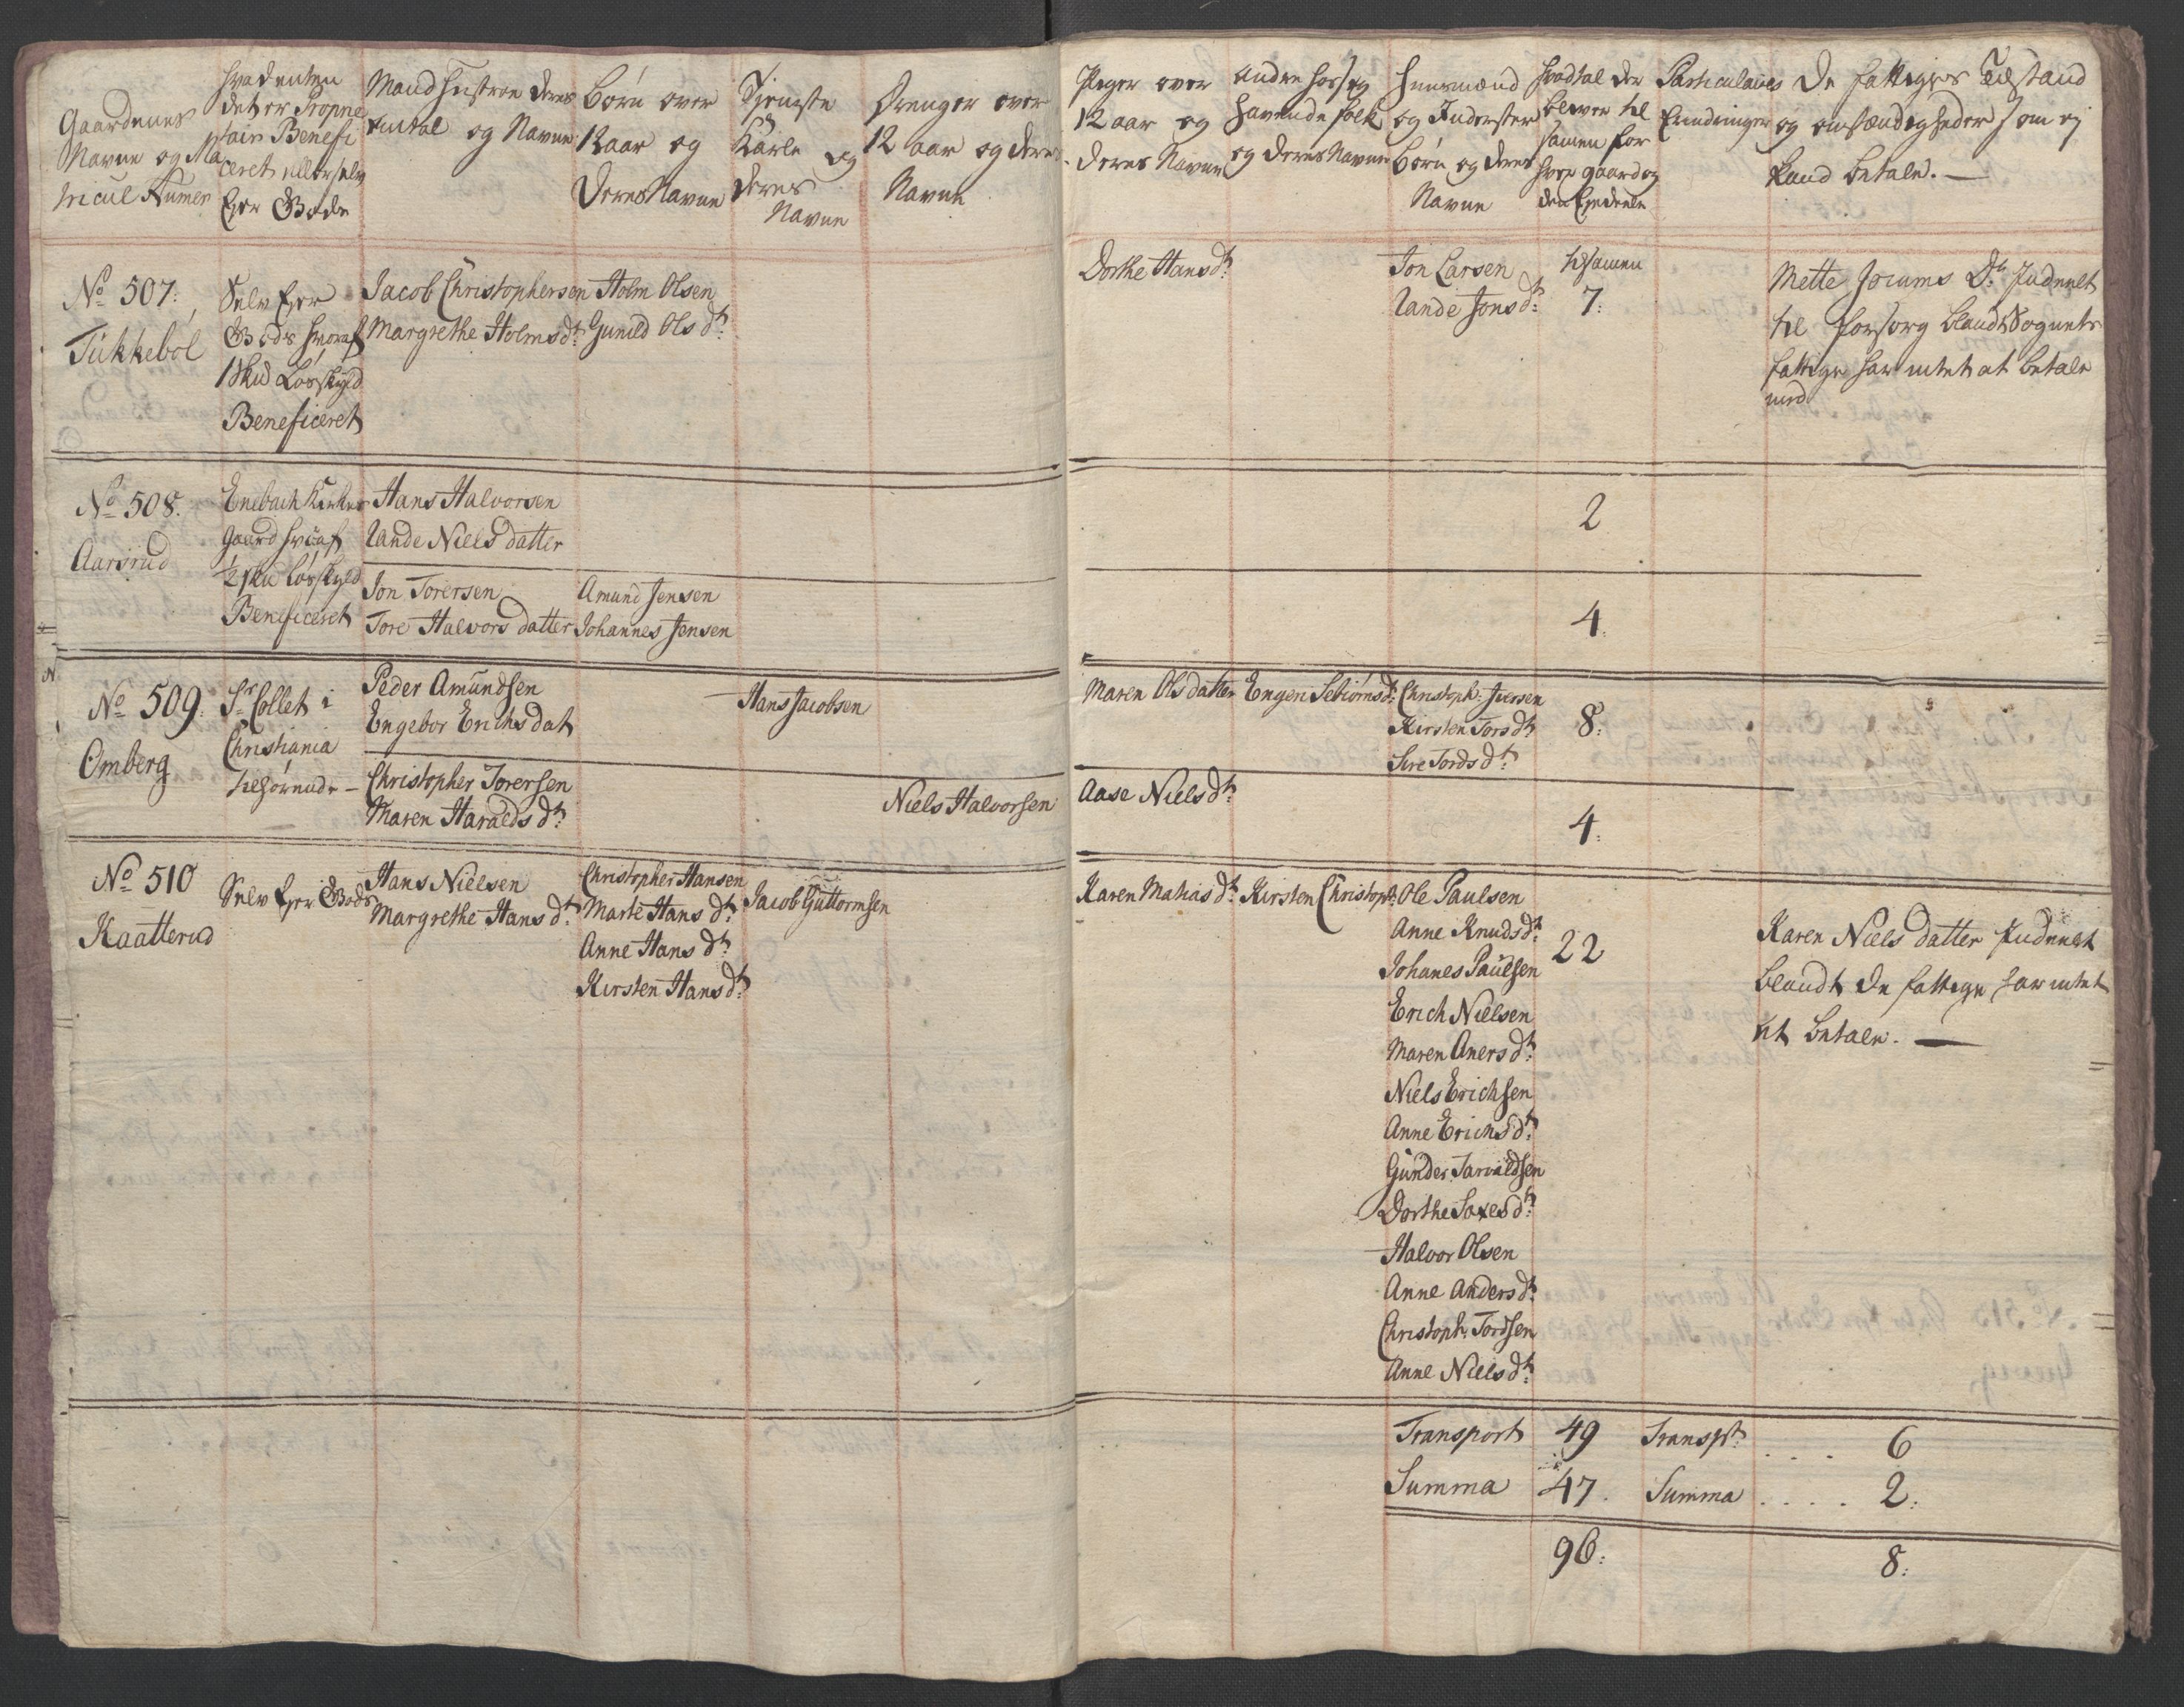 Gaardenes
Navne og Ma
tricul Numer
hvad enten
det er Proprie
tair Benefi
ceret eller selv
Ejer Gods
Mand Hustroe deres
Antal og Navne
Børn over
12 aar og
Deres Navne
Tjeneste
Karle og
deres
Navne
Drenger over
12 aar og deres
Navne
Piger over
12 aar og
deres Navne
Andre hos sig
havende folk
og deres Navne
Huusmænd
og Inderster
Børn og deres
Navne
Hvad tal der
blever til
samen for
hver gaard og
dens Ejedeele
Particulaires
Erindringer
De fattiges Tilstand
og omstændigheder som ej
kand betale. —
No 507:
Tükkebøl
Selv Ejer
Gods hvoraf
1 Skid Løsskyld
Beneficeret
Jacob Christophersen
Margrethe Holmsdr:
Holm Olsen
Gunild Olsdr:
Dorthe Hansdr:
Jon Larsen
Rande Jonsdr:
tilsamen
7:
Mette Joramsdr: Indeelt
til forsorg blandt Sognets
fattige har intet at betale
med
No 508.
Aarsrud
Enebach Kirkes
Gaard hvoraf
½ Skid løsskyld
Beneficeret
Hans Halvorsen
Rande Niels datter
2
Jon Torersen
Tore Halvors datter
Amund Jensen
Johannes Jensen
4.
No 509:
Omberg
Sr Collet i
Christiania
tilhørende —
Peder Amundsen
Engebor Erichsdat
Hans Jacobsen
Maren Olsdatter
Engen Sebiørnsdr:
Christoph: Iversen
Kirsten Torsdr
Sire Tordsdr:
8:
Christopher Torersen
Maren Haraldsdr:
Niels Halvorsen
Aase Nielsdr:
4:
No 510
Kaatterud
Selv Ejer Gods
Hans Nielsen
Margrethe Hansdr:
Christopher Hansen
Marte Hansdr:
Anne Hansdr:
Kirsten Hansdr:
Jacob Guttormsen
Karen Mathiasdr:
Kirsten Christoph:
Ole Paulsen
Anne Knudsdr:
Johanes Paulsen
Erich Nielsen
Maren Anersdr:
Niels Erichsen
Anne Erichsdr:
Gunder Tarvaldsen
Dorthe Saxesdr:
Halvor Olsen
Anne Andersdr:
Christoph: Tordsen
Anne Nielsdr:
22
Karen Niels datter Indeelt
blandt de fattige har intet
at betale. —
Transport 49 Transpt: . . . 6
Summa 47. Summa . . . . 2:
96: 8: